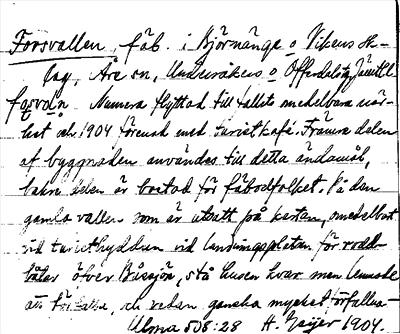 Forsvallen, fäb. i Björnänge o Vikens sk-
lag, Åre sn, Undersåkers o Offerdals tg Jämtl.
Numera flyttad till fallets omedelbara när-
het och 1904 försedd med turistkafé. Främre delen
af byggnaden användes till detta ändamål,
bakre delen är bostad för fäbodfolket. På den
gamla vallen som är utsatt på kartan, omedelbart
vid turisthyddan vid landningsplatsen för rodd-
båtar öfver sjön, stå husen kvar men lemnade
åt förfallet, och redan ganska mycket förfallna.
Ulma 508:28 H. Geijer 1904.